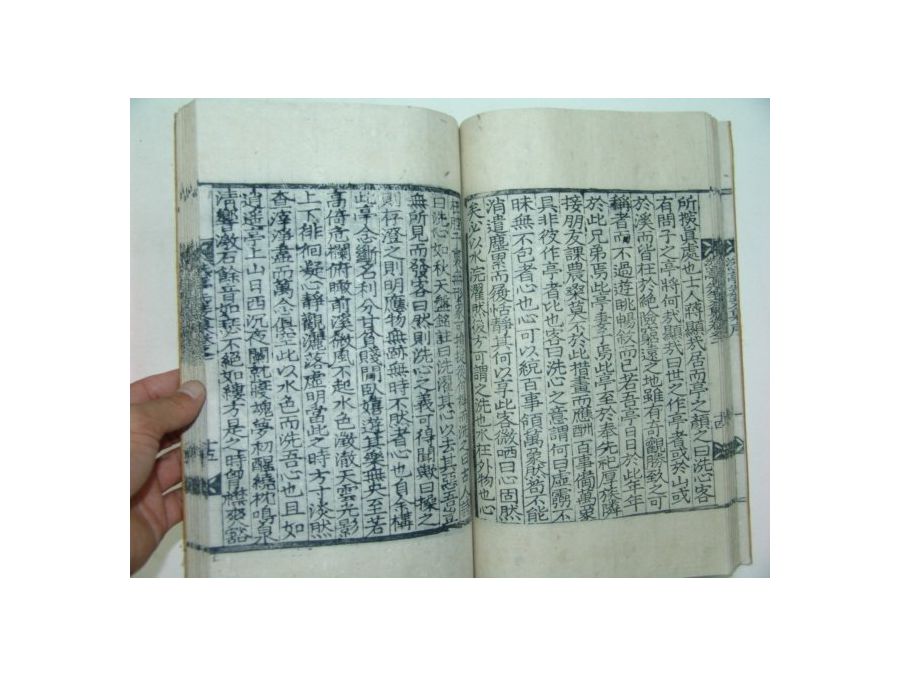 所撰眞處也士人將顯哉居而亭之顏之曰洗心客
有問子之亭將何哉顯哉曰世之作亭者或於山或
於溪而皆在於絶險窮遠之地雖有奇觀勝致之可
稱者而不過遊眺暢敍而已若吾亭日日於此年年
於此兄弟焉此亭妻子焉此亭至於奉先祀厚族隣
接朋友課農桑莫不於此措畫而應酬百事備萬衆
具非彼作亭者比也客曰洗心之意謂何曰虛靈不
昧無不包者心也心可以統百事領萬務然苟不能
消遣塵累而履恬靜其何以享此客微哂曰心固然
矣必以水浣濯然後方可謂之洗也水在外物也
曰洗心如秋天盤銘註曰洗濯其心以去其惡吾言
無所見而發客曰然則洗心之義可得聞歟曰操之
則存澄之則明應物無跡無時不然者心也自余構
此亭念斷名利分甘貧賤閒臥嬉遊其樂無央至若
高倚危欄俯瞰前溪微風不起水色澂澈天雲光影
上下徘徊凝心靜觀灑落虛明當此之時方寸淡然
査滓淨盡而萬念俱空此以水色而洗吾心也且如
逍遙亭上山日西沉夜闌就寢塊夢初醒繞枕鳴泉
淸響激石餘音如琴不絶如縷方是之時胷襟爽豁